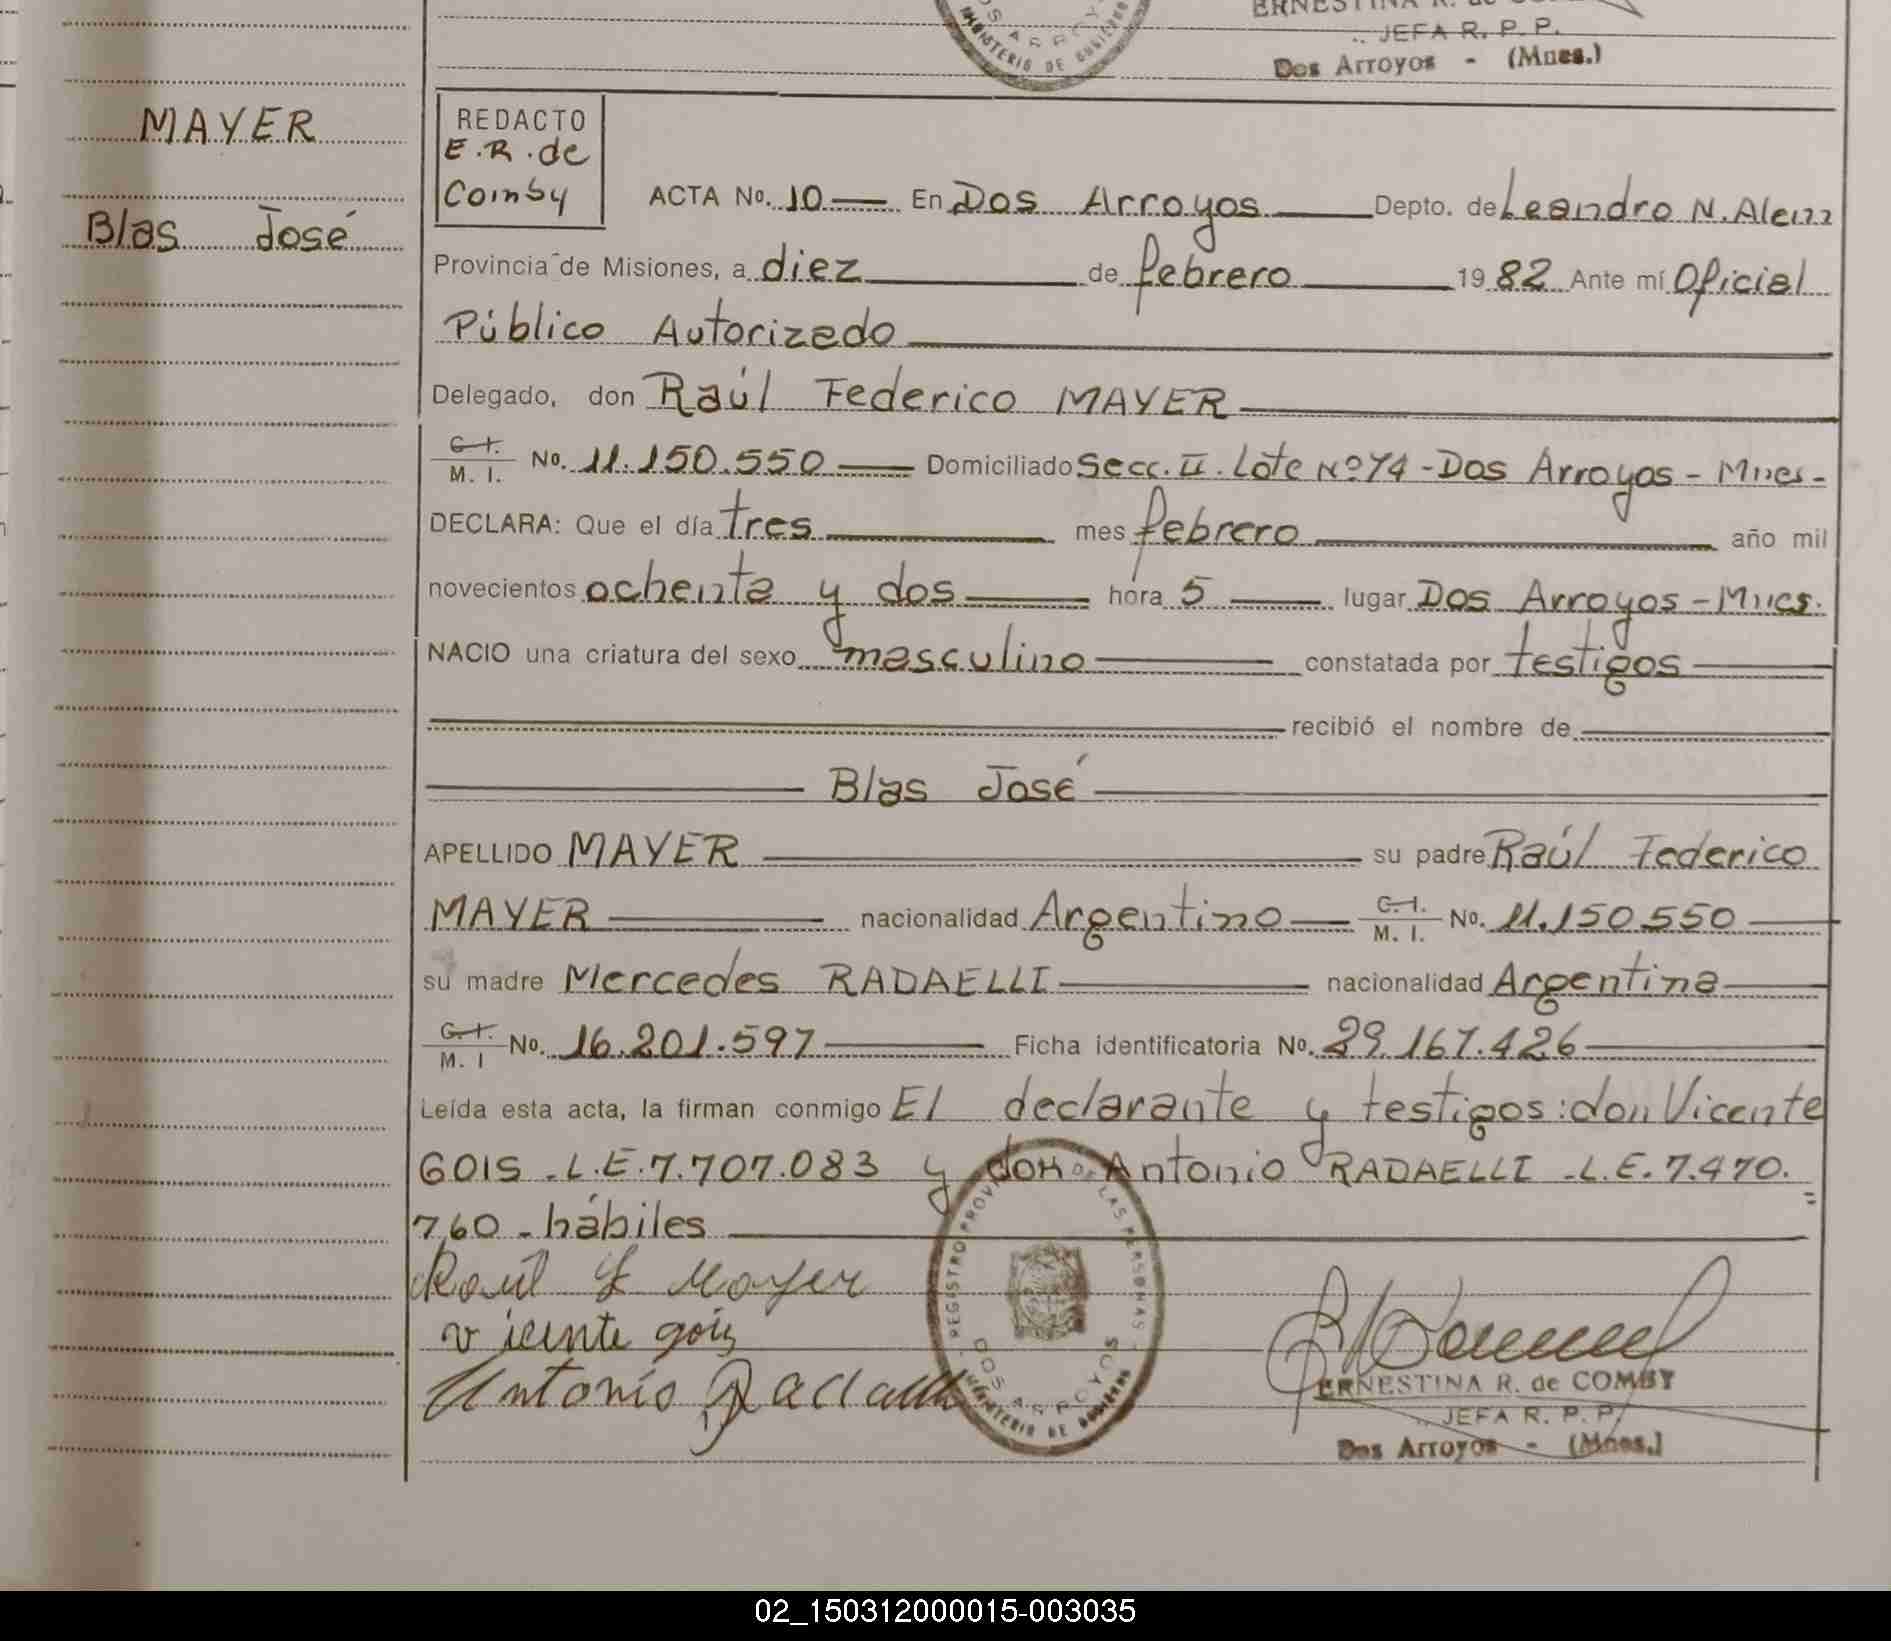 ERNESTINA R. de COMBY
JEFA R. P. P.
Dos Arroyos - (Mnes.)
MAYER
Blas José
REDACTO
E.R. de
Comby
ACTA No. 10 En Dos Arroyos Depto. de Leandro N. Alem
Provincia de Misiones, a diez de febrero 1982 Ante mí Oficial
Público Autorizado
Delegado, don Raúl Federico MAYER
C.I. M.I. No. 11.150.550 Domiciliado Secc. II. Lote Nº 74 - Dos Arroyos - Mnes -
DECLARA: Que el día tres mes febrero año mil
novecientos ochenta y dos hora 5 lugar Dos Arroyos - Mnes.
NACIO una criatura del sexo masculino constatada por testigos
recibió el nombre de
Blas José
APELLIDO MAYER su padre Raúl Federico
MAYER nacionalidad Argentino C.I. M.I. No. 11.150.550
su madre Mercedes RADAELLI nacionalidad Argentina
C.I. M.I No. 16.201.597 Ficha identificatoria No. 29.167.426
Leída esta acta, la firman conmigo El declarante y testigos: don Vicente
GOIS - L.E. 7.707.083 y don Antonio RADAELLI - L.E. 7.470.
760 - hábiles
Raúl F Mayer
vicente gois
Antonio Radaelli
REGISTRO PROVINCIAL DE LAS PERSONAS
DOS ARROYOS
MINISTERIO DE GOBIERNO
ERNESTINA R. de COMBY
JEFA R. P. P.
Dos Arroyos - (Mnes.)
02_150312000015-003035